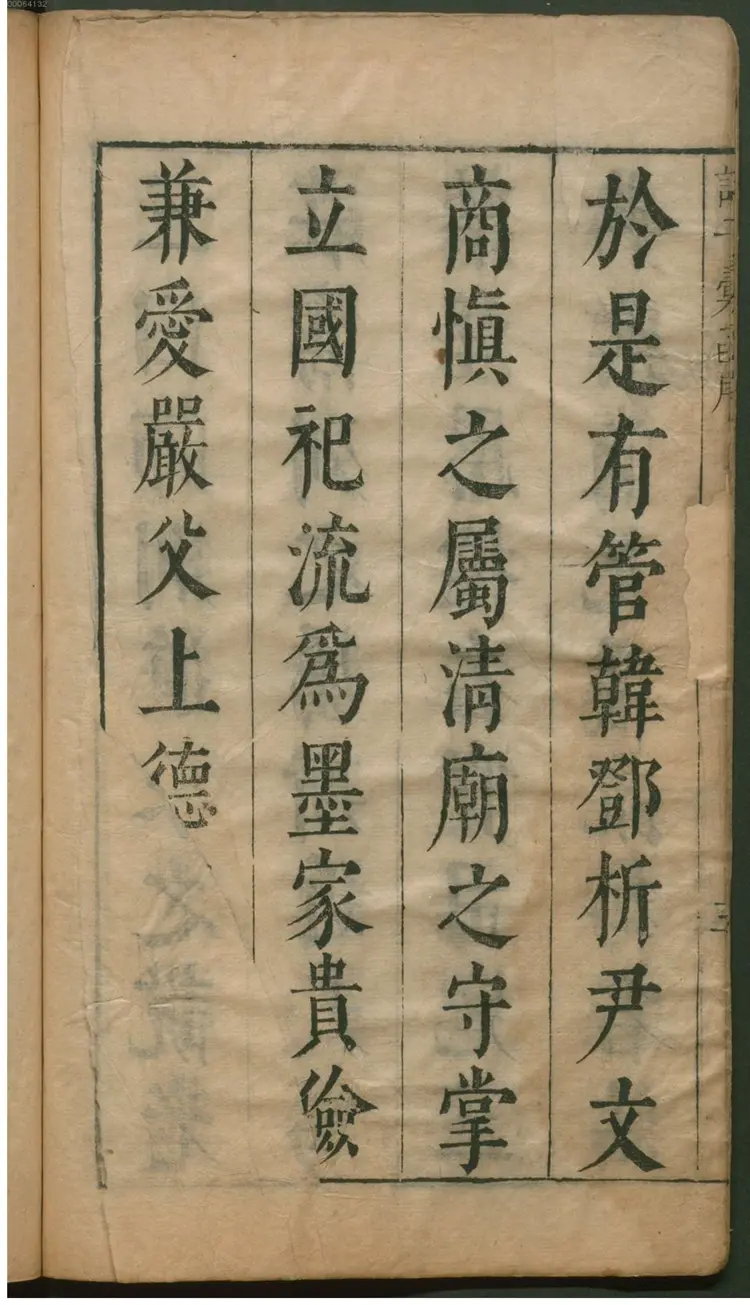 00064132
於是有管韓鄧析尹文
商愼之屬清廟之守掌
立國祀流爲墨家貴儉
兼愛嚴父上德